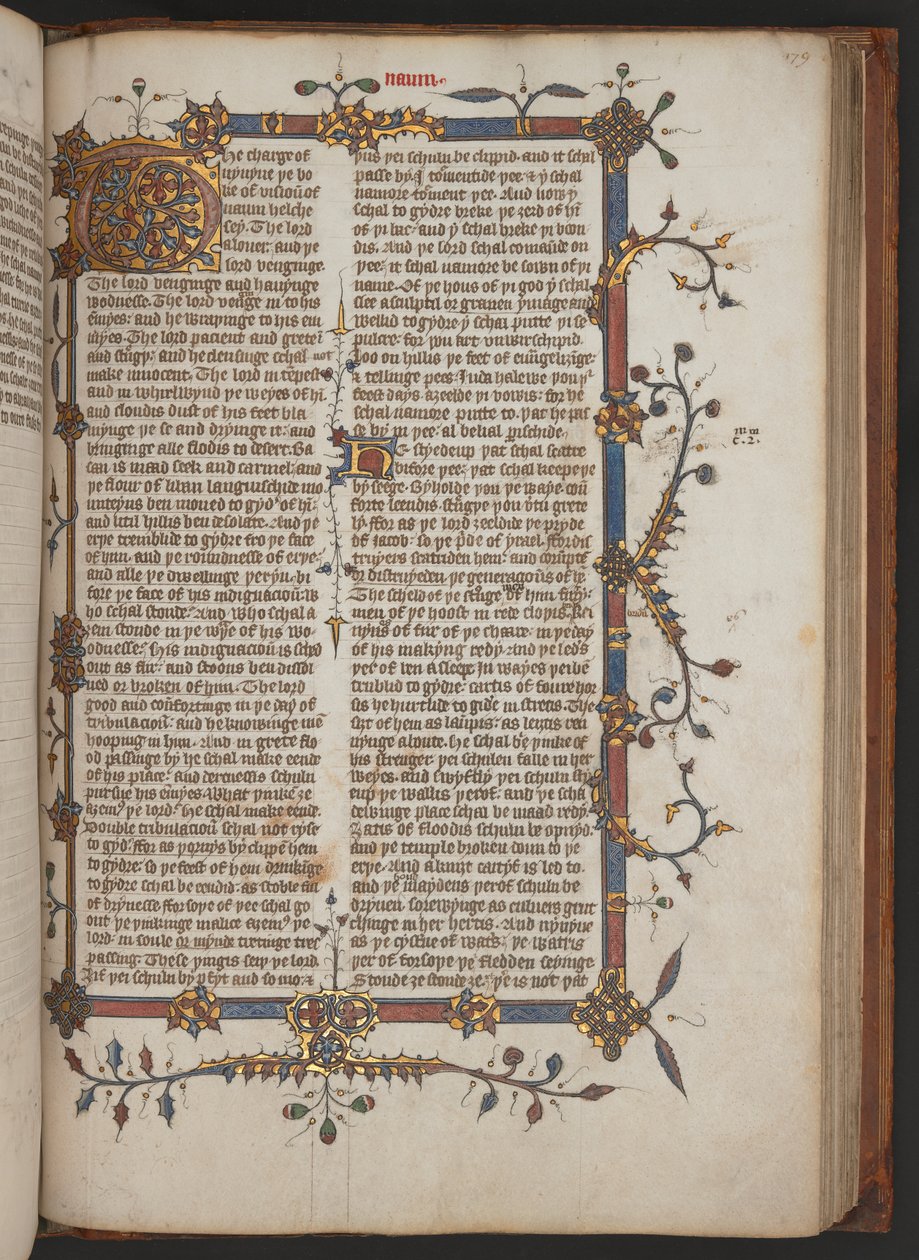 naum
179
The charge of
nynyue ye bo
ke of visioū of
naum helche
sey. The lord
a louer: and ye
lord vengynge.
The lord vengynge and hauynge
wodnesse. The lord vengynge in to his
enmyes: and he wraþþynge to his en
myes. The lord pacient and grete ī
and strēgþ: and he clensynge schal not
make innocent. The lord in tēpest
and in whirlwynd ye weyes of hī
and cloudis dust of his feet bla
wynge ye se and dryinge it: and
bryngynge alle flodis to desert. Ba
san is maad seek and carmel: and
ye flour of liban languyschide mo
unteyns ben moued to gydʼ of hī:
and litil hillis ben desolate. And ye
erye tremblide to gydre fro ye face
of hym. and ye roundnesse of erye:
and alle ye dwellinge yerin. bi
fore ye face of his indignacioū w
ho schal stonde: And who schal a
ȝein stonde in ye wrye of his wo
odnesse. His indignacioū is sched
out as fiir: and stoons ben dissol
ued or broken of him. The lord
good and counfortinge in ye day of
tribulacioū: and he knowinge mē
hoopinge in him. And in grete flo
od passinge by he schal make eende
of his place: and derknessis schuln
pursue his enmyes. What þinke ȝe
aȝens ye lord: he schal make eende.
Double tribulacioū schal not ryse
to gydʼ. ffor as þornys byclippen hem
to gydre: so ye feest of hem drinkīge
to gydre schal be eendid: as stoble ful
of drynesse. ffor soye of yee schal go
out ye þinkinge malice aȝens ye
lord: in soule or mynde tretinge trec
passing. These þingis seiy ye lord.
Ȝif yei schuln by pfyt and so mo: &
yus yei schuln be clippid. and it schal
passe by. I tormentide yee: & y schal
namore torment yee. And now y
schal to gydre breke ye ȝerd of hī
of yi bac: and y schal breke yi bon
dis. And ye lord schal comaūde on
yee: it schal namore be sown of yi
name. Of ye hous of yi god y schal
slee a sculptil or grauen ymage and
wellid to gydre y schal putte yi se
pulcre: for you art vnwirschipid.
Loo on hillis ye feet of euāgelizīge:
& tellinge pees. Juda halewe you yiⁿ
feest days: & ȝeelde yi vowis: for he
schal namore putte to. yat he pas
se by in yee: al belial perischide.
He styede up yat schal scatre
bifore yee: yat schal keepe ye
by seege. Byholde you ye waye. coū
forte leendis. strēgye you vtu grete
ly. ffor as ye lord ȝeeldide ye pryde
of jacob: so ye pʼde of yrael. ffor dis
tryers scatriden hem: and corupte
or distryeden ye generacioūs of hē.
The scheld of ye strōge of him fiiry:
men of ye hoost in rede cloþis. Rei
nyns of fiir of ye chaar. in ye day
of his makyng redy. And ye leders
yer of ben a sleepe. In wayes yei be
trublid to gydre: cartis of foure hor
sis be hurtlide to gidʼe in stretis. The
siȝt of hem as laumpis: as leitis ren
nynge aboute. He schal bʼe þinke of
his strenger. yei schulen falle in her
weyes. and swyftly yei schuln sty
e up ye wallis yerof: and ye scha
dewinge place schal be maad redy.
Ȝatis of floodis schuln be opnyd:
and ye temple broken doun to ye
erye. And a knyȝt caityf is led to.
and ye hond maydens yerof schuln be
dryuen. sorewynge as culuers grut
chinge in her hertis. And nynyue
as ye cysterne of watrʼs ye watris
yer of forsoye yei fledden seyinge
Stonde ȝe stonde ȝe: ye is not yat